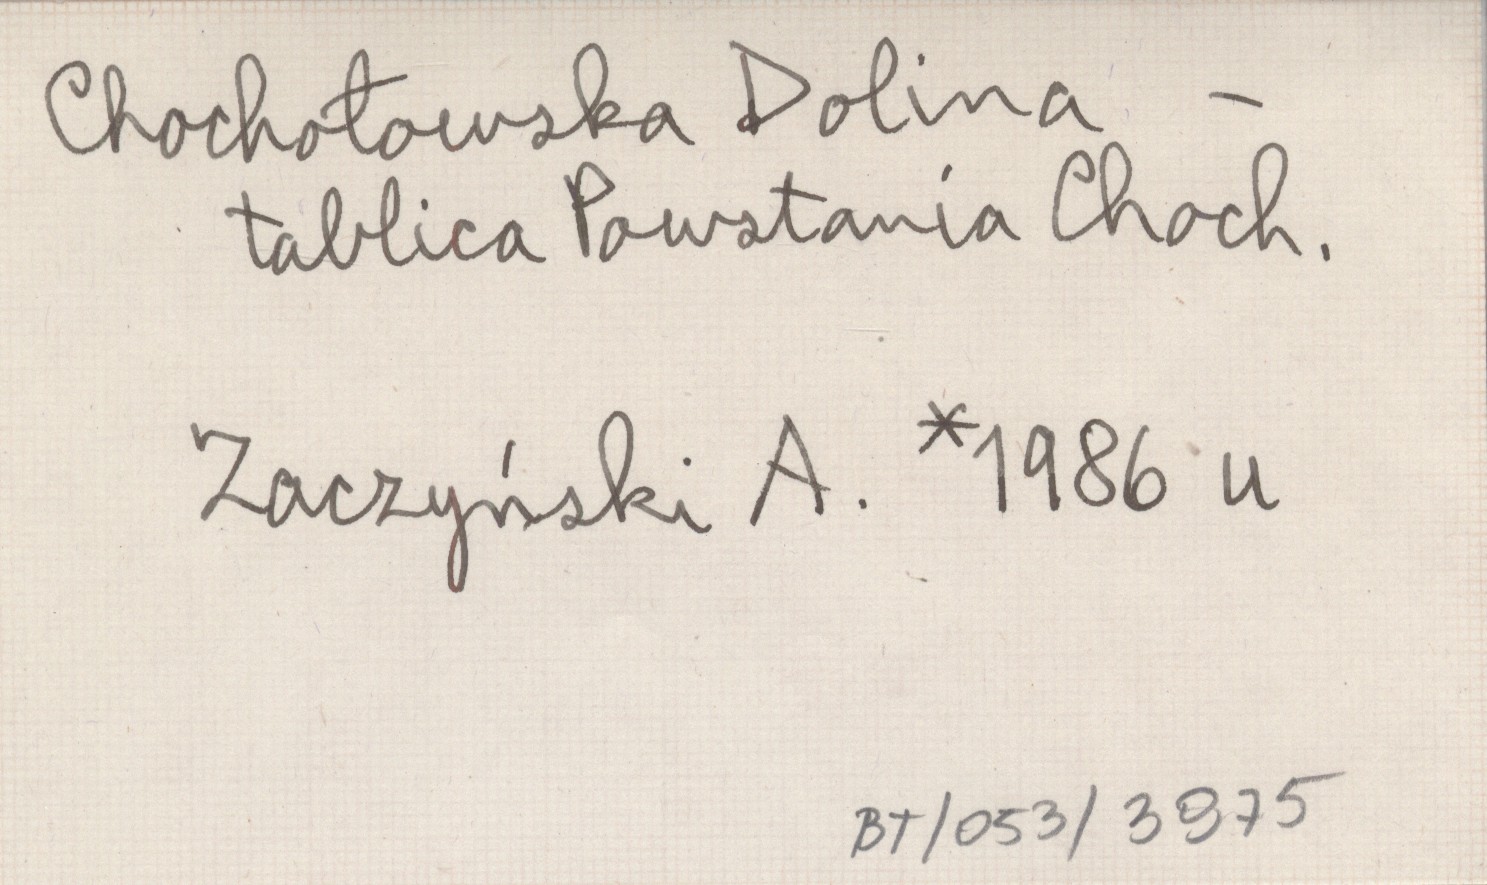 Chochołowska Dolina –
tablica Powstania Choch.
Zaczyński A. *1986 u
BT/053/3975